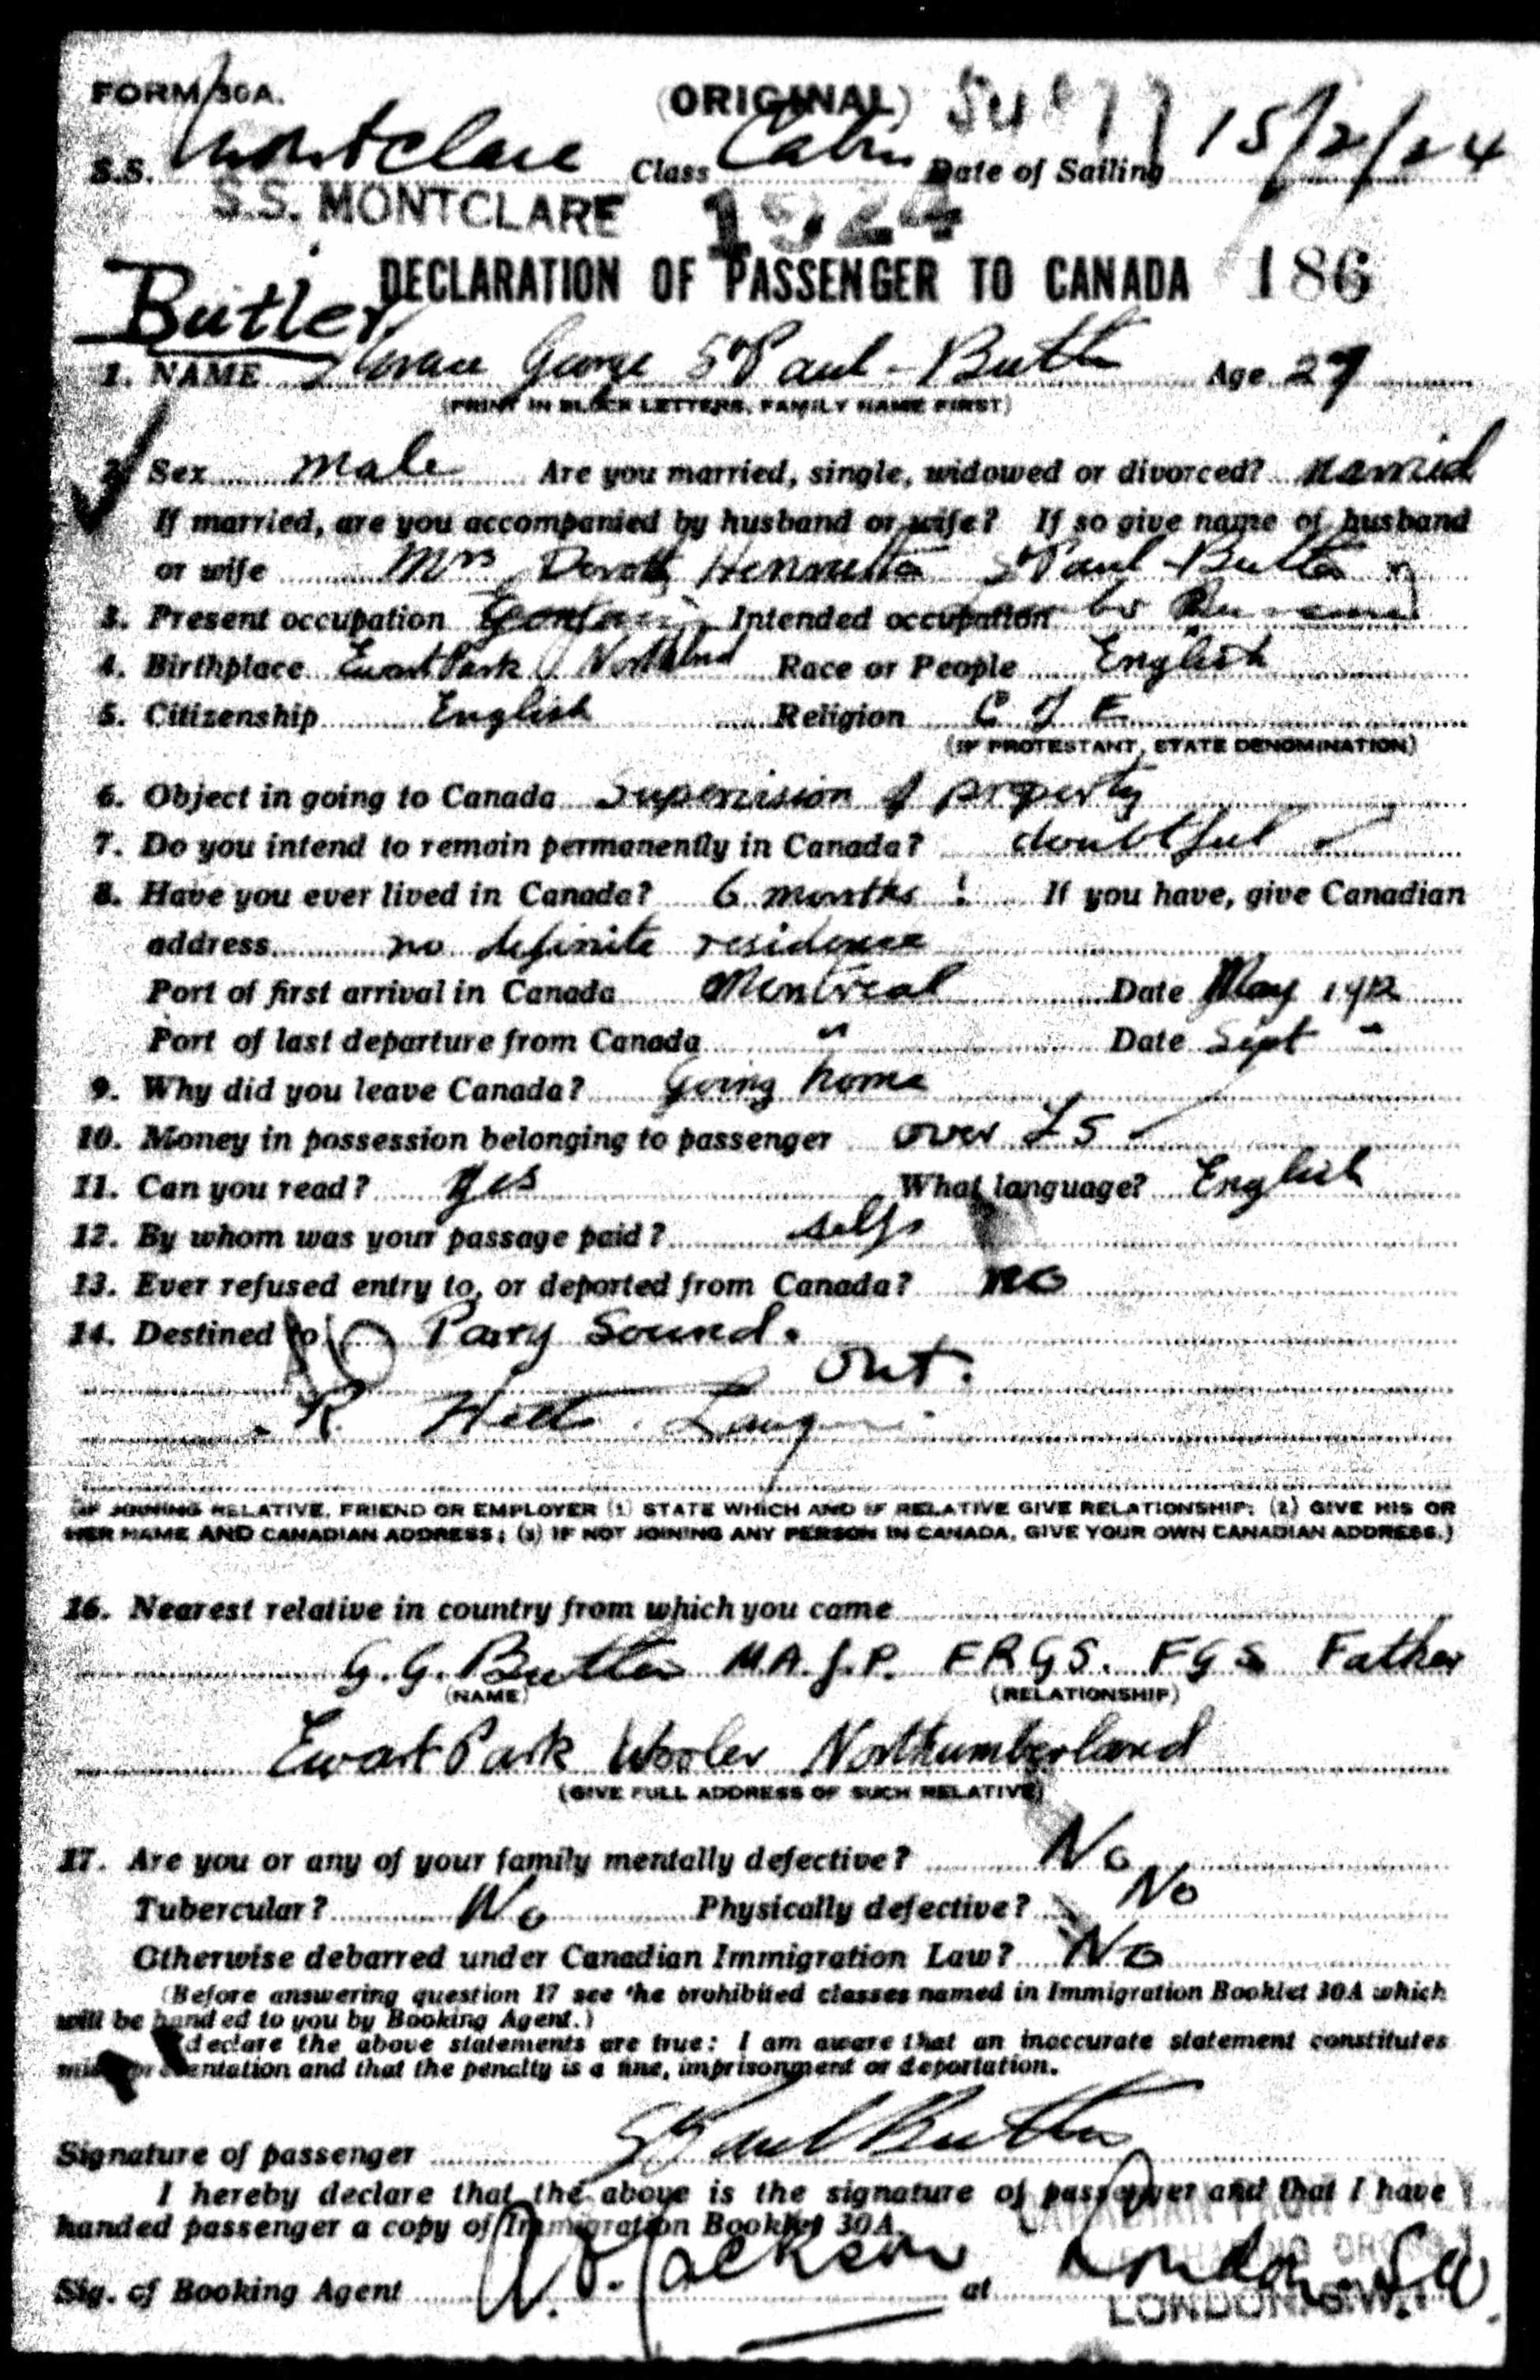 FORM 30A. (ORIGINAL)
S.S. Montclare Class Cabin Date of Sailing 15/2/24
S.S. MONTCLARE 1924
DECLARATION OF PASSENGER TO CANADA 186
Butler
1. NAME Horace George St Paul-Butler Age 27
(PRINT IN BLOCK LETTERS, FAMILY NAME FIRST)
2. Sex male Are you married, single, widowed or divorced? married
If married, are you accompanied by husband or wife? If so give name of husband
or wife Mrs Dorothy Henrietta St Paul-Butler
3. Present occupation Intended occupation
4. Birthplace Ewart Park Northbld Race or People English
5. Citizenship English Religion C of E
(IF PROTESTANT, STATE DENOMINATION)
6. Object in going to Canada Supervision of property
7. Do you intend to remain permanently in Canada? doubtful
8. Have you ever lived in Canada? 6 months ! If you have, give Canadian
address no definite residence
Port of first arrival in Canada Montreal Date May 1912
Port of last departure from Canada " Date Sept "
9. Why did you leave Canada? Going home
10. Money in possession belonging to passenger over £5
11. Can you read? yes What language? English
12. By whom was your passage paid? self
13. Ever refused entry to, or deported from Canada? no
14. Destined to Parry Sound.
Ont.
R.
(IF JOINING RELATIVE, FRIEND OR EMPLOYER (1) STATE WHICH AND IF RELATIVE GIVE RELATIONSHIP; (2) GIVE HIS OR
HER NAME AND CANADIAN ADDRESS; (3) IF NOT JOINING ANY PERSON IN CANADA, GIVE YOUR OWN CANADIAN ADDRESS.)
16. Nearest relative in country from which you came
G. G. Butler M.A. J.P. F.R.G.S. F G S Father
(NAME) (RELATIONSHIP)
Ewart Park Wooler Northumberland
(GIVE FULL ADDRESS OF SUCH RELATIVE)
17. Are you or any of your family mentally defective? No
Tubercular? No Physically defective? No
Otherwise debarred under Canadian Immigration Law? No
(Before answering question 17 see the prohibited classes named in Immigration Booklet 30A which
will be handed to you by Booking Agent.)
I declare the above statements are true: I am aware that an inaccurate statement constitutes
misrepresentation and that the penalty is a fine, imprisonment or deportation.
Signature of passenger St Paul Butler
I hereby declare that the above is the signature of passenger and that I have
handed passenger a copy of Immigration Booklet 30A.
Sig. of Booking Agent Jackson at London. SW.
LONDON, S.W.1